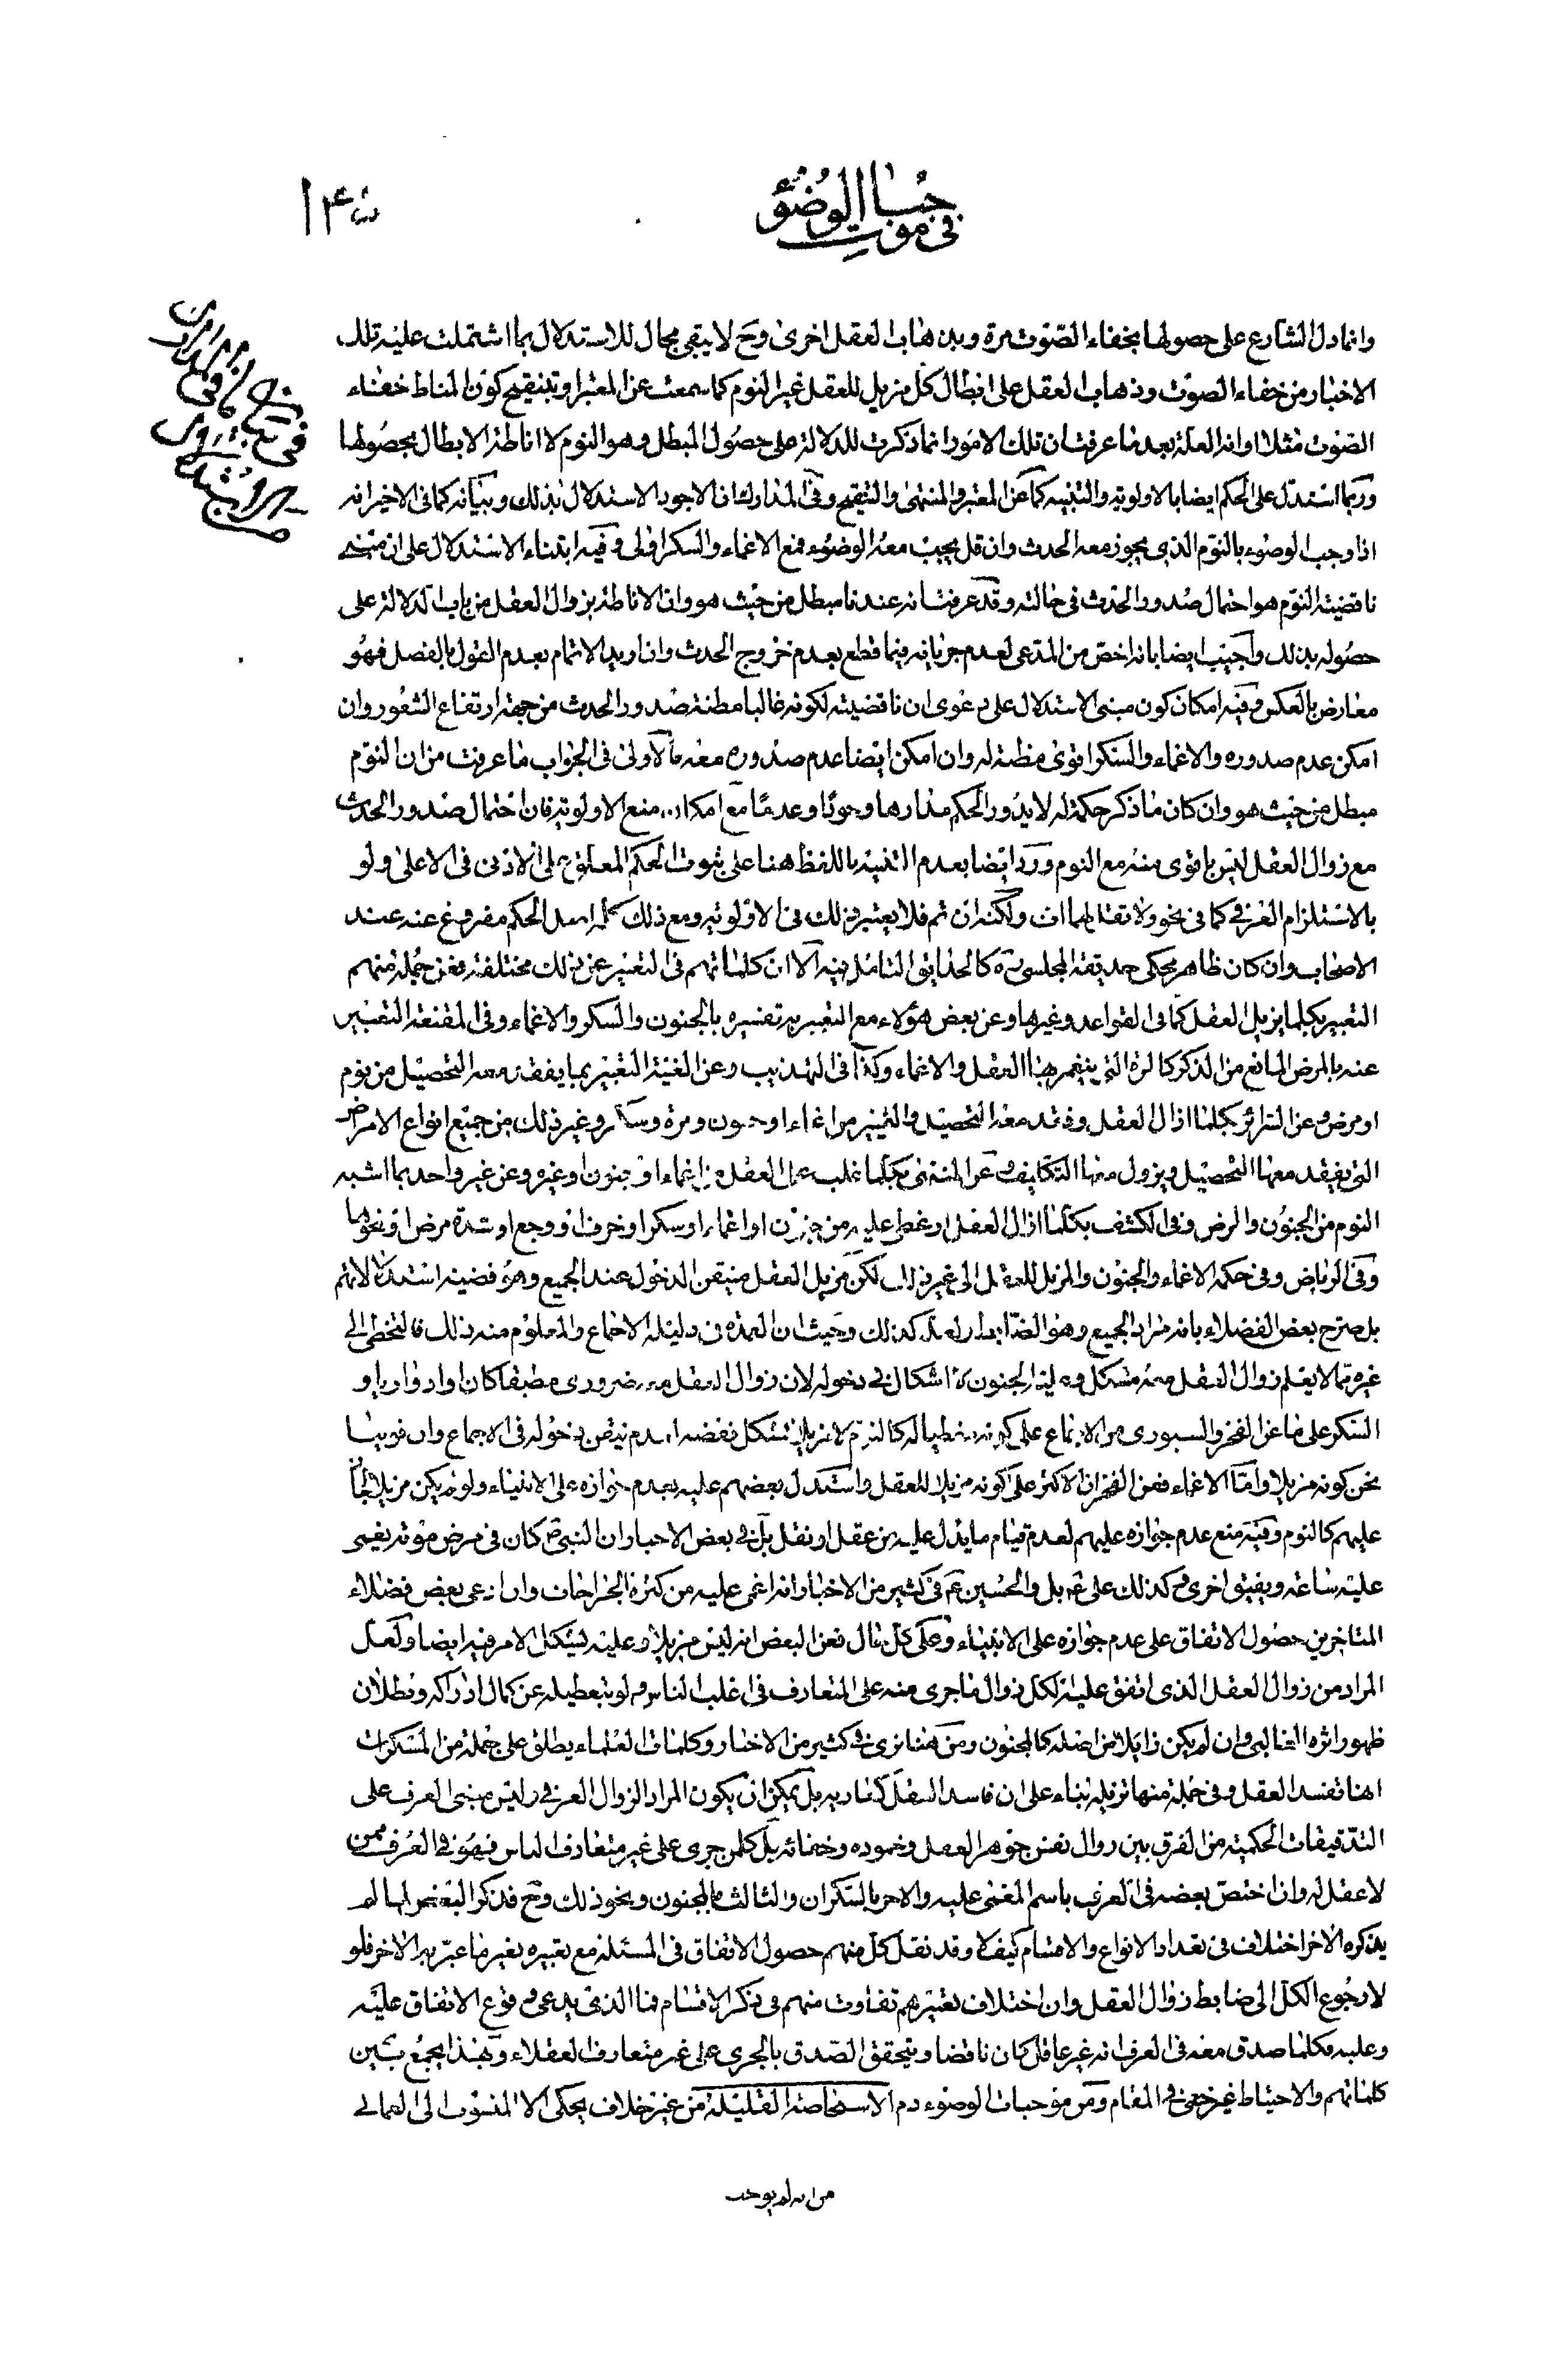 في موجبات الوضوء
وانما دل الشارع على حصولها بخفاء الصّوت مرة وبذهاب العقل اخرى وح لا يبقى مجال للاستدلال بما اشتملت عليه تلك
الاخبار من خفاء الصوت وذهاب العقل على ابطال كل مزيل للعقل غير النوم كما سمعت عن المعتبر او بتنقيح كون المناط خفاء
الصّوت مثلا او انه العلة بعد ما عرفت ان تلك الامور انما ذكرت للدلالة على حصول المبطل وهو النوم لا اناطة الابطال بحصولها
وربما استدل على الحكم ايضا بالاولوية والتنبيه كما عن المعتبر والمنتهى والتنقيح وفي المدارك ان الاجود الاستدلال بذلك وبيانه كما في الاخير انه
اذا وجب الوضوء بالنوم الذي يجوز معه الحدث وان قل يجب معه الوضوء فمع الاغماء والسكر اولى وفيه ابتناء الاستدلال على ان
ناقضية النوم هو احتمال صدور الحدث في حالته وقد عرفت انه عندنا مبطل من حيث هو وان الاناطة بزوال العقل من باب الدلالة على
حصوله بذلك واجيب ايضا بانه اخص من المدعى لعدم جريانه فيما قطع بعدم خروج الحدث وان اريد الاتمام بعدم القول بالفصل فهو
معارض بالعكس وفيه امكان كون مبنى الاستدلال على دعوى ان ناقضيته لكونه غالبا مظنة صدور الحدث من جهة ارتفاع الشعور وان
امكن عدم صدوره والاغماء والسكر اقوى مظنة له وان امكن ايضا عدم صدوره معه فالاولى في الجواب ما عرفت من ان النوم
مبطل من حيث هو وان كان ما ذكر حكمة له لا يدور الحكم مدارها وجودا وعدما مع امكان منع الاولوية فان احتمال صدور الحدث
مع زوال العقل ليس باقوى منه مع النوم ورد ايضا بعدم التنبيه باللفظ هنا على ثبوت الحكم المعلق على الادنى في الاعلى ولو
بالاستلزام العرفي كما في نحو ولا تقل لهما اف ولكنه ان تم فلا يعتبر ذلك في الاولوية ومع ذلك الحكم مفروغ عنه عند
الاصحاب وان كان ظاهر محكى حديقة المجلسي كالحدايق التامل فيه الا ان كلماتهم في التعبير عن ذلك مختلفة فعن جملة منهم
التعبير بكلما يزيل العقل كما في القواعد وغيرها وعن بعض هؤلاء مع التعبير به تفسيره بالجنون والسكر والاغماء وفي المقنعة التعبير
عنه بالمرض المانع من الذكر كالمرة التي ينغمر بها العقل والاغماء وكذا في التهذيب وعن الغنية التعبير بما يفقد معه التحصيل من نوم
او مرض وعن السرائر بكلما ازال العقل وفقد معه التحصيل والتمييز من اغماء او جنون ومرة وسكر وغير ذلك من جميع انواع الامراض
التي يفقد معها التحصيل ويزول معها التكليف وعن المنتهى بكلما غلب على العقل من اغماء او جنون او غيره وعن غير واحد بما اشبه
النوم من الجنون والمرض وفي الكشف بكلما ازال العقل او غطى عليه من جنون او اغماء او سكر او خرف او وجع او شدة مرض او نحوها
وفي الرياض وفي حكمه الاغماء والجنون والمزيل للعقل الى غير ذلك لكن مزيل العقل متيقن الدخول عند الجميع وهو قضية استدلالاتهم
بل صرح بعض الفضلاء بانه مراد الجميع كذلك وحيث ان العمدة في دليله الاجماع والمعلوم منه ذلك فالتخطى الى
غيره مما لا يعلم زوال العقل معه مشكل الجنون لا اشكال في دخوله لان زوال العقل معه ضروري مطبقا كان او ادواريا و
السكر على ما عن الفخر والسيوري من الاجماع على كونه كالنوم لا مزيلا يشكل نقضه لعدم تيقن دخوله في الاجماع وان قوينا
نحن كونه مزيلا واما الاغماء فعن الفخر ان الاكثر على كونه مزيلا للعقل واستدل بعضهم عليه بعدم جوازه على الانبياء ولو لم يكن مزيلا لجاز
عليهم كالنوم وفيه منع عدم جوازه عليهم لعدم قيام ما يدل عليه من عقل او نقل بل في بعض الاخبار ان النبي ص كان في مرض موته يغمى
عليه ساعة ويفيق اخرى وكذلك علي ع بل والحسين ع في كثير من الاخبار انه اغمى عليه من كثرة الجراحات وان ادعى بعض فضلاء
المتاخرين حصول الاتفاق على عدم جوازه على الانبياء وعلى كل حال فعن البعض انه ليس مزيلا وعليه يشكل الامر فيه ايضا ولعل
المراد من زوال العقل الذي اتفق عليه الكل زوال ما جرى منه على المتعارف في اغلب الناس ولو بتعطيله عن كمال ادراكه وبطلان
ظهور اثره الغالبي وان لم يكن زايلا من اصله كالمجنون ومن هنا ترى في كثير من الاخبار وكلمات العلماء يطلق على جملة من المسكرات
انها تفسد العقل وفي جملة منها تزيله بناء على ان فاسد العقل بل يمكن ان يكون المراد الزوال العرفي وليس مبنى العرف على
التدقيقات الحكمية من الفرق بين زوال نفس جوهر العقل وخموده وخفائه بل كل من جرى على غير متعارف الناس فهو في العرف ممن
لا عقل له وان اختص بعضه في العرف باسم المغمى عليه والاخر بالسكران والثالث بالمجنون ونحو ذلك وح فذكر البعض لما لم
يذكره الاخر اختلاف في تعداد الانواع والاقسام كيف لا وقد نقل كل منهم حصول الاتفاق في المسئلة مع تعبيره بغير ما عبر به الاخر فلو
لا رجوع الكل الى ضابط زوال العقل وان اختلاف تعبيرهم تفاوت منهم في ذكر الاقسام فما الذي يدعى وقوع الاتفاق عليه
وعليه فكلما صدق معه في العرف انه غير عاقل كان ناقضا ويتحقق الصدق بالجرى على غير متعارف العقلاء وبهذا يجمع بين
كلماتهم والاحتياط غير خفى في المقام ومن موجبات الوضوء دم الاستحاضة القليلة من غير خلاف يحكى الا المنسوب الى العماني
من انه لم يوجب